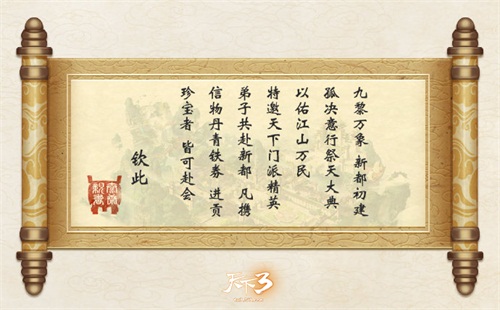 九黎万象 新都初建
孤决意行祭天大典
以佑江山万民
特邀天下门派精英
弟子共赴新都 凡携
信物丹青铁券 进贡
珍宝者 皆可赴会
钦此
天下3